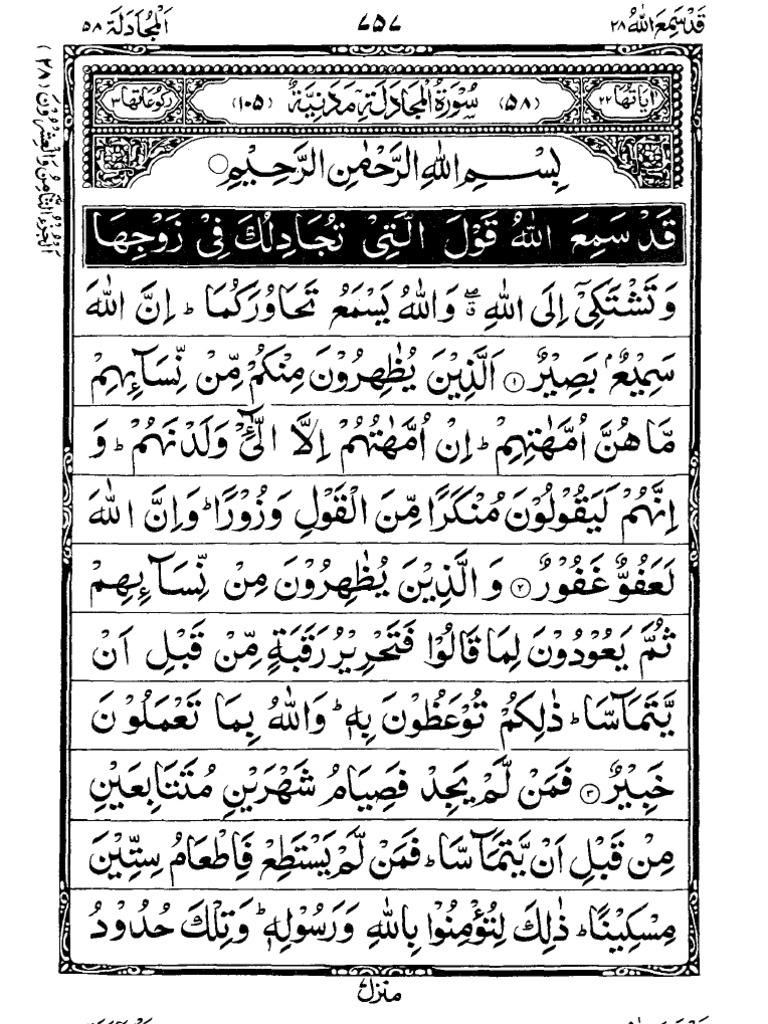 قَدْ سَمِعَ اللّٰهُ ٢٨
٧٥٧
اَلْمُجَادَلَة ٥٨
اَلْجُزْءُ الثَّامِنُ وَالْعِشْرُوْنَ (٢٨)
اٰيَاتُهَا ٢٢ (٥٨) سُوْرَةُ الْمُجَادَلَةِ مَدَنِيَّةٌ (١٠٥) رُكُوْعَاتُهَا ٣
بِسْمِ اللّٰهِ الرَّحْمٰنِ الرَّحِيْمِ
قَدْ سَمِعَ اللّٰهُ قَوْلَ الَّتِيْ تُجَادِلُكَ فِيْ زَوْجِهَا
وَتَشْتَكِيْۤ اِلَى اللّٰهِ ۖ وَاللّٰهُ يَسْمَعُ تَحَاوُرَكُمَا ؕ اِنَّ اللّٰهَ
سَمِيْعٌۢ بَصِيْرٌ ۝١ اَلَّذِيْنَ يُظٰهِرُوْنَ مِنْكُمْ مِّنْ نِّسَآئِهِمْ
مَّا هُنَّ اُمَّهٰتِهِمْ ؕ اِنْ اُمَّهٰتُهُمْ اِلَّا الّٰٓـِٔيْ وَلَدْنَهُمْ ؕ وَ
اِنَّهُمْ لَيَقُوْلُوْنَ مُنْكَرًا مِّنَ الْقَوْلِ وَزُوْرًا ؕ وَاِنَّ اللّٰهَ
لَعَفُوٌّ غَفُوْرٌ ۝٢ وَالَّذِيْنَ يُظٰهِرُوْنَ مِنْ نِّسَآئِهِمْ
ثُمَّ يَعُوْدُوْنَ لِمَا قَالُوْا فَتَحْرِيْرُ رَقَبَةٍ مِّنْ قَبْلِ اَنْ
يَّتَمَآسَّا ؕ ذٰلِكُمْ تُوْعَظُوْنَ بِهٖ ؕ وَاللّٰهُ بِمَا تَعْمَلُوْنَ
خَبِيْرٌ ۝٣ فَمَنْ لَّمْ يَجِدْ فَصِيَامُ شَهْرَيْنِ مُتَتَابِعَيْنِ
مِنْ قَبْلِ اَنْ يَّتَمَآسَّا ؕ فَمَنْ لَّمْ يَسْتَطِعْ فَاِطْعَامُ سِتِّيْنَ
مِسْكِيْنًا ؕ ذٰلِكَ لِتُؤْمِنُوْا بِاللّٰهِ وَرَسُوْلِهٖ ؕ وَتِلْكَ حُدُوْدُ
منزل